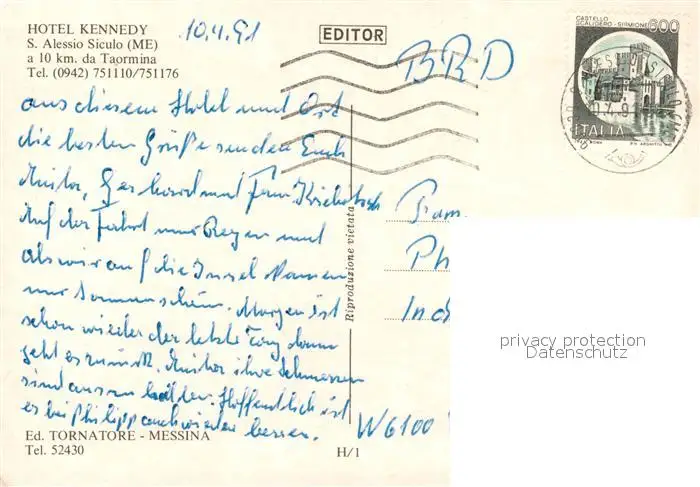 HOTEL KENNEDY
S. Alessio Siculo (ME)
a 10 km. da Taormina
Tel. (0942) 751110/751176
10.4.91
EDITOR
BRD
CASTELLO
SCALIGERO - SIRMIONE
600
ITALIA
aus diesem Hotel und Ort
die besten Grüße senden Euch
Anita, Gerhard und Fam.
Auf der Fahrt nur Regen und
als wir auf die Insel kamen
nur Sonnenschein. Morgen ist
schon wieder der letzte Tag dann
geht es zurück. Anita ihre Schmerzen
sind auszuhalten. Hoffentlich ist
es bei Philipp auch wieder besser.
Fam
Ph
Ind
W6100
Riproduzione vietata
privacy protection
Datenschutz
Ed. TORNATORE - MESSINA
Tel. 52430
H/1